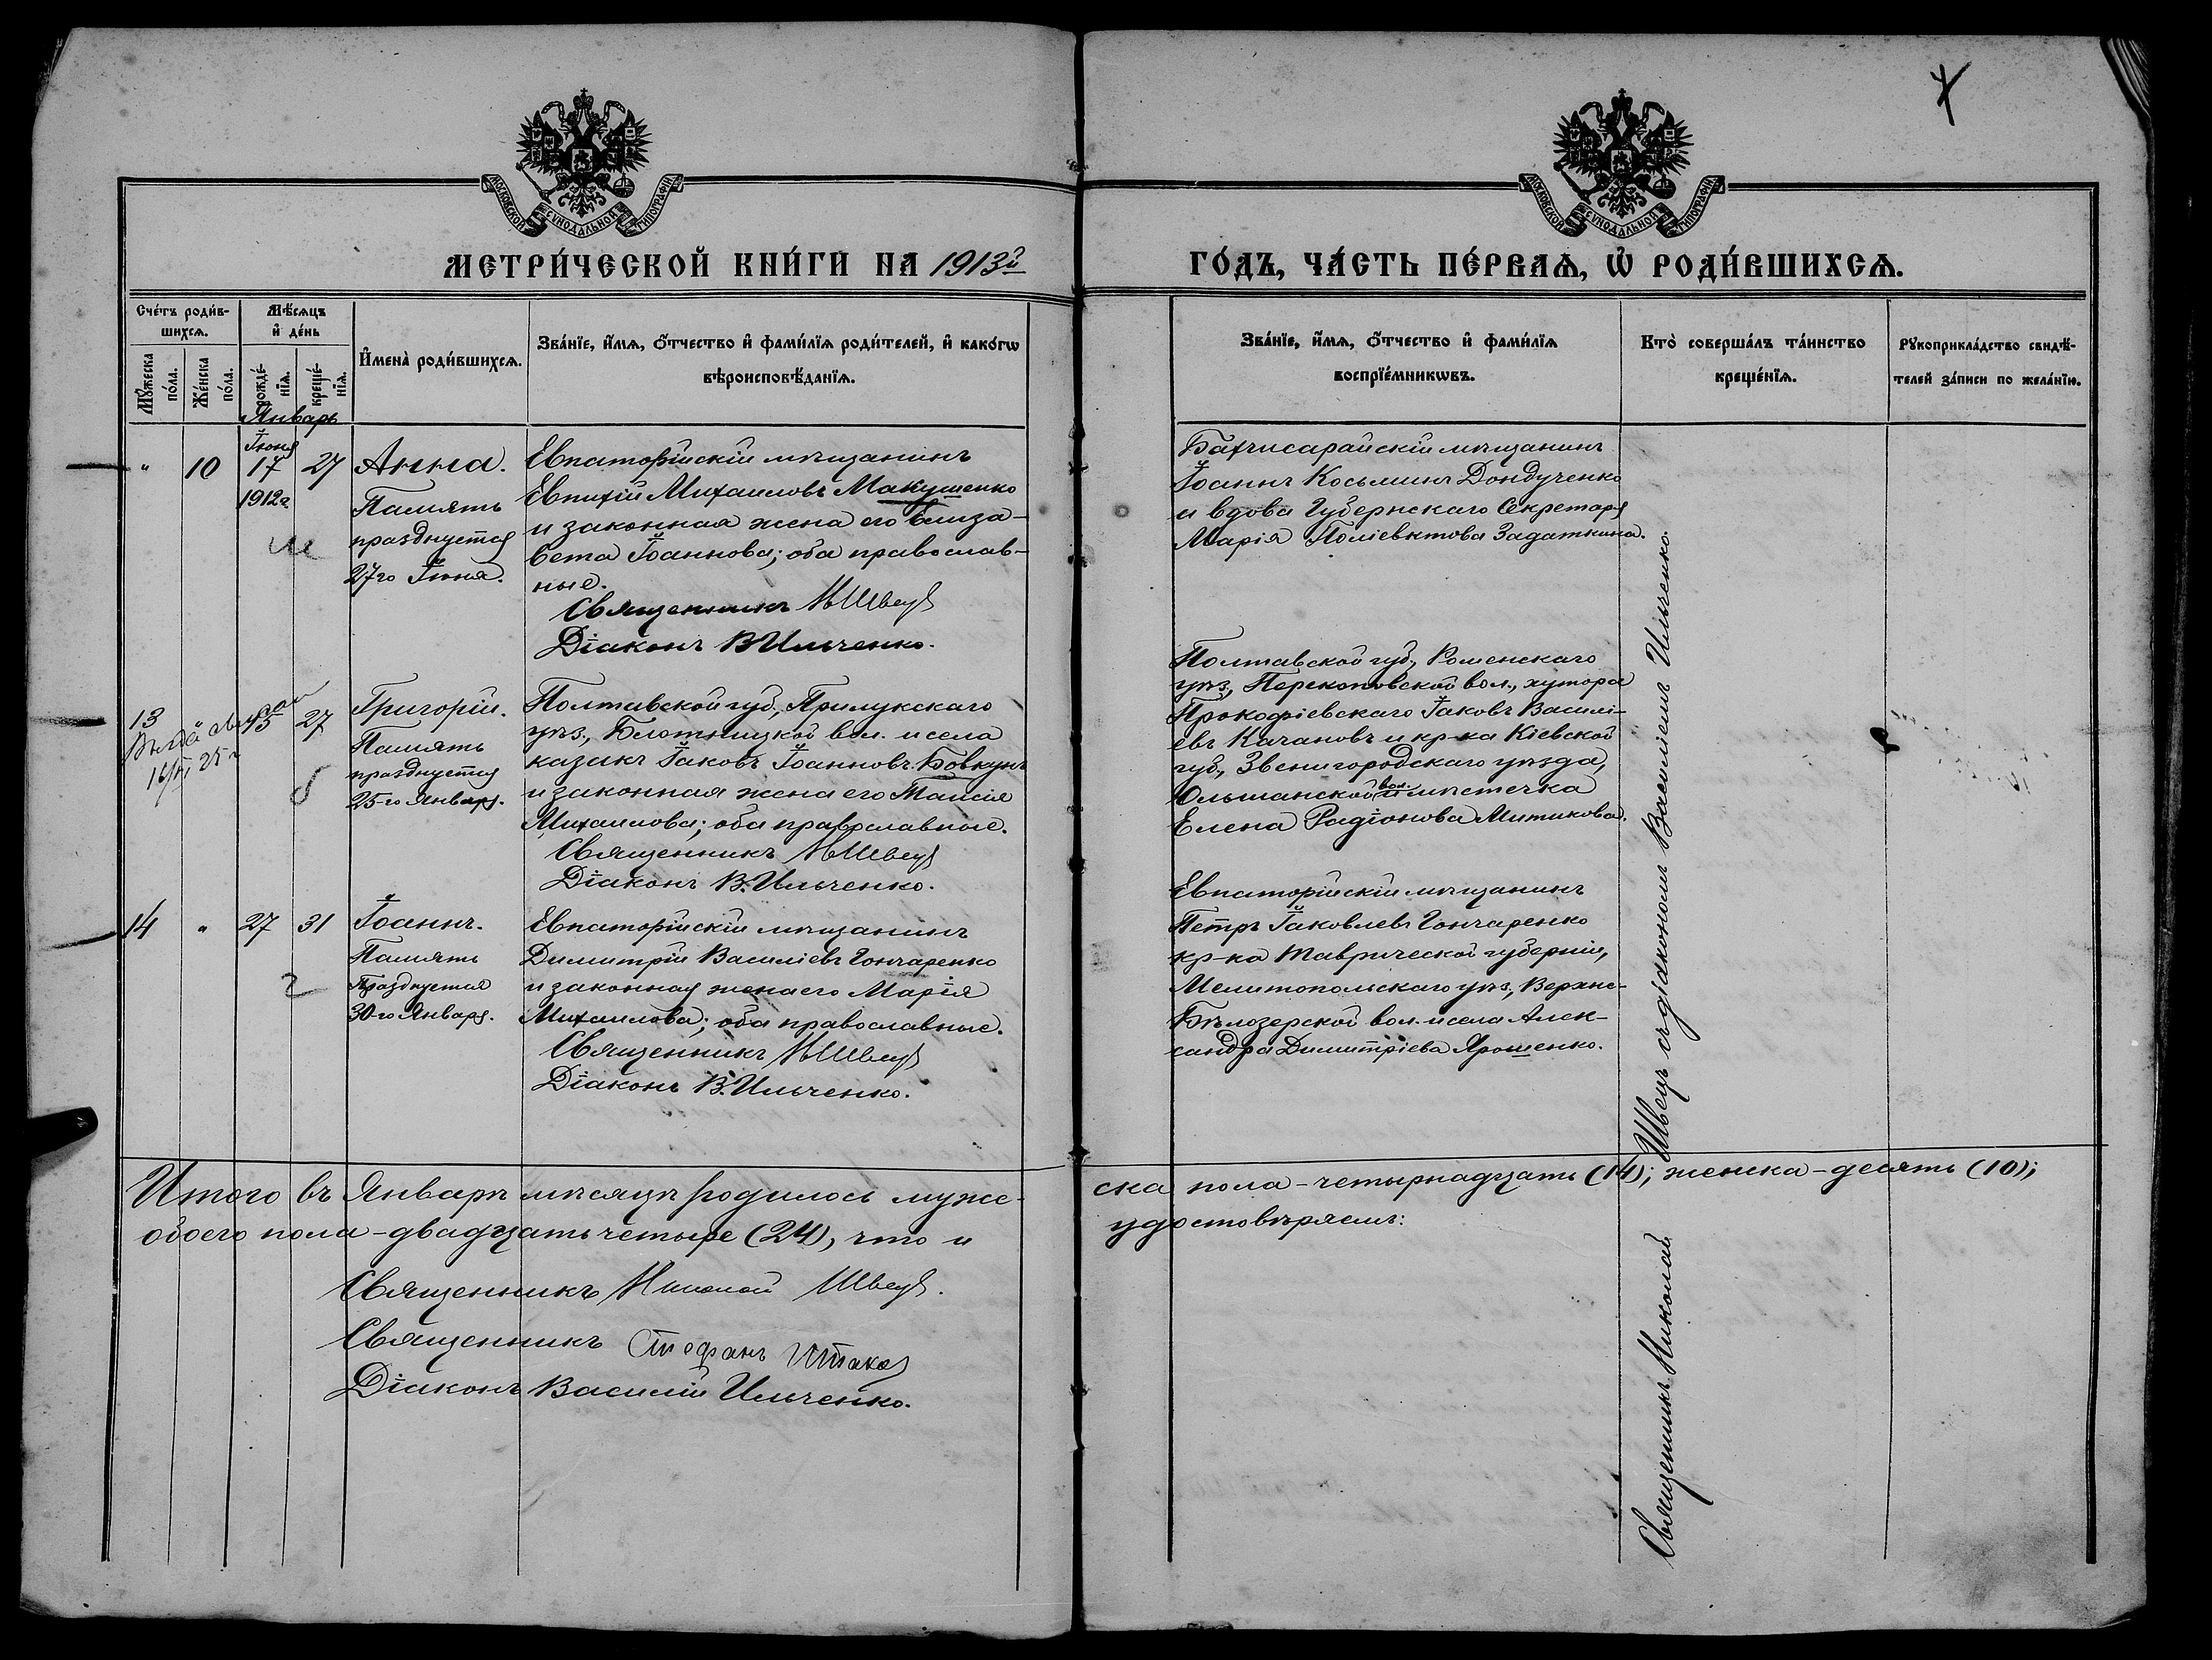 7
МОСКОВСКОЙ СУНОДАЛЬНОЙ ТИПОГРАФІИ
МОСКОВСКОЙ СУНОДАЛЬНОЙ ТИПОГРАФІИ
МЕТРИ́ЧЕСКОЙ КНИ́ГИ НА 1913й ГО́ДЪ, ЧА́СТЬ ПЕ́РВАѦ, Ѡ҆ РОДИ́ВШИХСѦ.
Сче́тъ роди́в-
шихсѧ.
Мꙋ́жеска по́ла.
Же́нска по́ла.
Мѣ́сѧцъ
и҆ де́нь
рожде́-
нїѧ.
креще́-
нїѧ.
И҆мена̀ роди́вшихсѧ.
Зва́нїе, и҆́мѧ, ѻ҆́тчество и҆ фами́лїѧ роди́телей, и҆ како́гѡ
вѣроисповѣ́данїѧ.
Зва́нїе, и҆́мѧ, ѻ҆́тчество и҆ фами́лїѧ
воспрїе́мникѡвъ.
Кто̀ соверша́лъ та́инство
креще́нїѧ.
Рꙋкоприкла́дство свидѣ́-
телей за́писи по жела́нїю.
Январь
" 10 Іюня 17 1912г. 27
Анна.
Память
празднуется
27го Іюня.
Евпаторійскій мѣщанинъ
Евтихій Михаиловъ Макушенко
и законная жена его Елиза-
вета Іоаннова; оба православ-
ные.
Священникъ Н Швецъ
Діаконъ В Ильченко.
Бахчисарайскій мѣщанинъ
Іоаннъ Косьминъ Дондученко
и вдова Губернскаго Секретаря
Марія Поліевктова Задаткина.
13 15 27
Григорій.
Память
празднуется
25-го Январ.
Полтавской губ., Прилукскаго
уѣз., Блотницкой вол. и села
казакъ Іаковъ Іоанновъ Бовкунъ
и законная жена его Таисія
Михаилова; оба православные.
Священникъ Н Швецъ
Діаконъ В. Ильченко.
Полтавской губ., Роменскаго
уѣз., Перекоповской вол., хутора
Прокофіевскаго Іаковъ Василі-
евъ Качановъ и кр-ка Кіевской
губ., Звенигородскаго уѣзда,
Ольшанской вол. и мѣстечка
Елена Радіонова Митикова.
14 " 27 31
Іоаннъ.
Память
Празднуется
30-го Январ.
Евпаторійскій мѣщанинъ
Димитрій Василіевъ Гончаренко
и законная жена его Марія
Михаилова; оба православные.
Священникъ Н Швецъ
Діаконъ В. Ильченко.
Евпаторійскій мѣщанинъ
Петръ Іаковлевъ Гончаренко
кр-ка Таврической губерніи,
Мелитопольскаго уѣз., Верхне-
Бѣлозерской вол. и села Алек-
сандра Димитріева Ярошенко.
Священникъ Николай Швецъ съ діакономъ Василіемъ Ильченко.
Итого въ Январѣ мѣсяцѣ родилось муже-ска пола - четырнадцать (14); женска - десять (10);
обоего пола - двадцать четыре (24), что и удостовѣряемъ:
Священникъ Николай Швецъ.
Священникъ Стефанъ
Діаконъ Василій Ильченко.